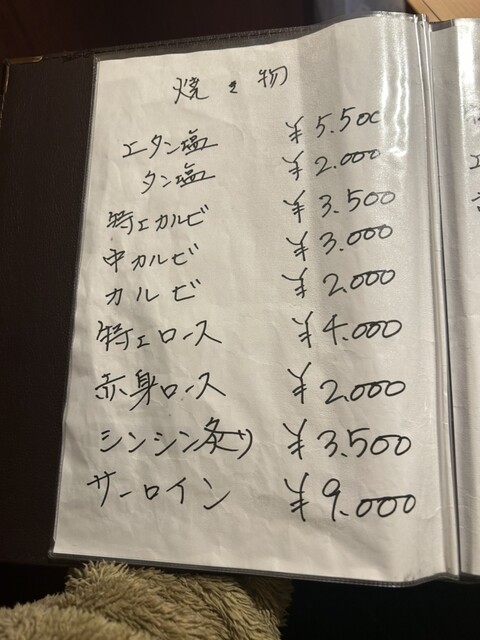 焼き物
上タン塩 ¥5.500
タン塩 ¥2.000
特上カルビ ¥3.500
中カルビ ¥3.000
カルビ ¥2.000
特上ロース ¥4.000
赤身ロース ¥2.000
シンシン炙り ¥3.500
サーロイン ¥9.000